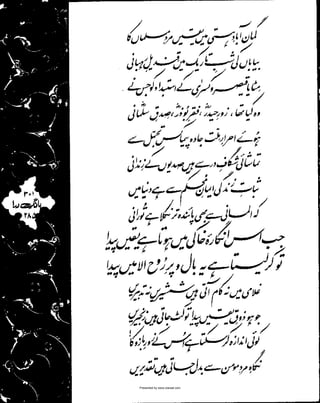 گماں آبادِ ہستی میں یقیں مردِ مسلماں کا
بیاباں کی شبِ تاریک میں قندیلِ رہبانی
مٹایا قیصر و کسریٰ کے استبداد کو جس نے
وہ کیا تھا، زورِ حیدرؓ، فقرِ بوذرؓ، صدقِ سلمانیؓ
ہوئے احرارِ ملت جادہ پیما کس تجمل سے
تماشائی شگافِ در سے ہیں صدیوں کے زندانی
ثباتِ زندگی ایمانِ محکم سے ہے دنیا میں
کہ المانی سے بھی پائندہ تر نکلا ہے تورانی
جب اس انگارۂ خاکی میں ہوتا ہے یقیں پیدا
تو کر لیتا ہے یہ بال و پرِ روح الامیں پیدا
غلامی میں نہ کام آتی ہیں شمشیریں نہ تدبیریں
جو ہو ذوقِ یقیں پیدا تو کٹ جاتی ہیں زنجیریں
کوئی اندازہ کر سکتا ہے اس کے زورِ بازو کا
نگاہِ مردِ مومن سے بدل جاتی ہیں تقدیریں
۳۰۱
بانگِ درا
۲۸۵